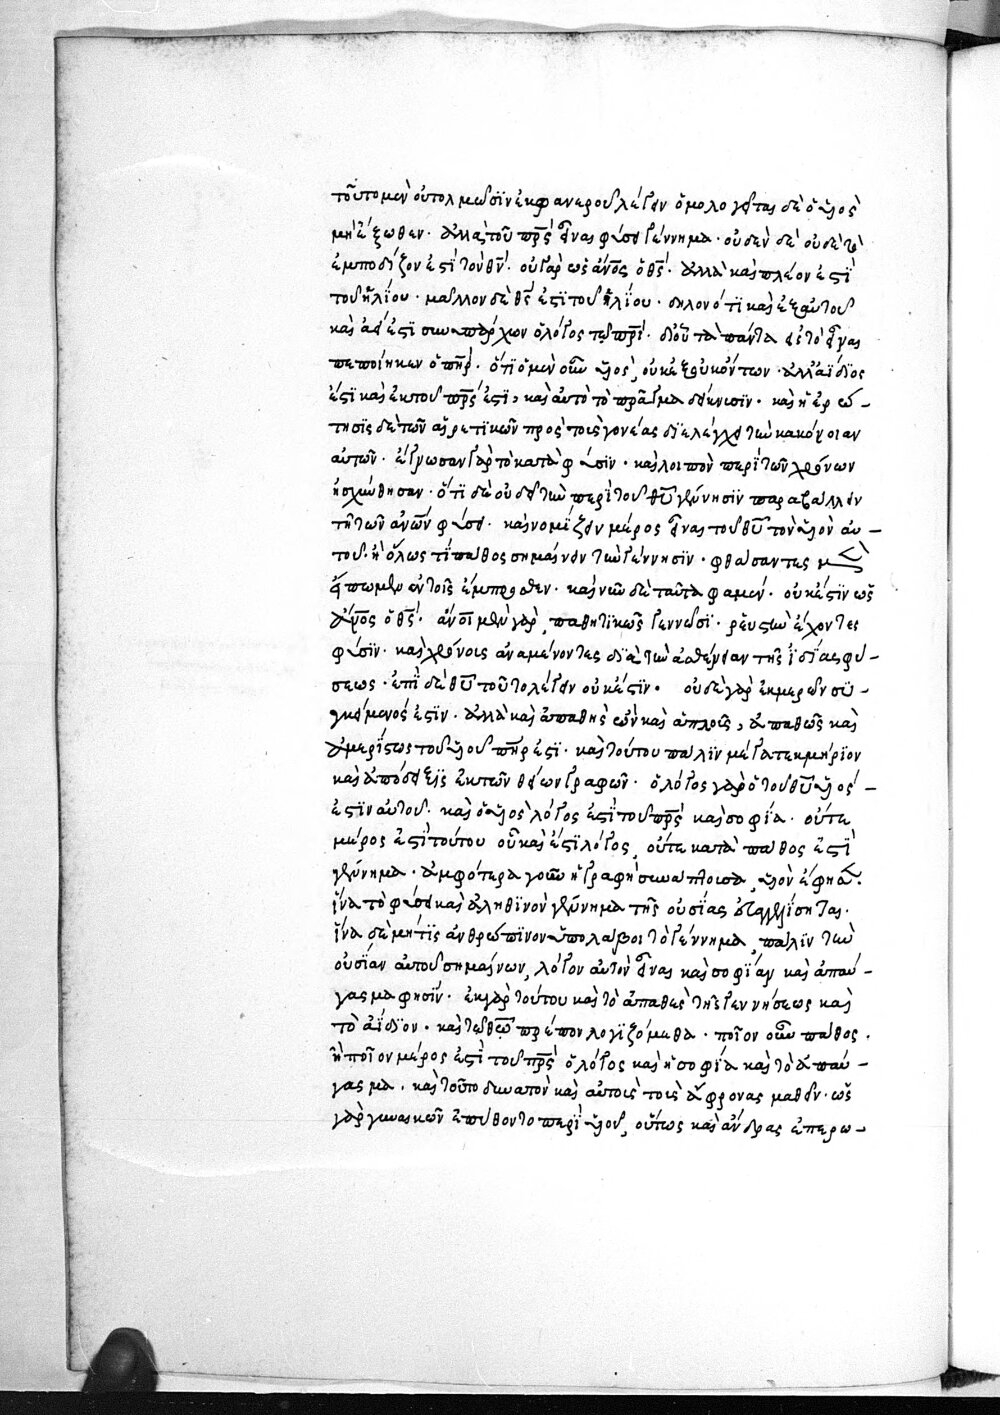 τοῦτο μὲν οὐ τολμῶσιν ἐκφανεροῦ λέγειν· ὁμολογεῖται δὲ ὁ υἱὸς
μὴ ἔξωθεν· ἀλλὰ τοῦ πρς̅ εἶναι φύσει γέννημα· οὐδὲν δὲ οὐδὲ τὸ
ἐμποδίζον ἐστὶ τὸν θν̅· οὐ γὰρ ὡς ἄνος̅ ὁ θς̅· ἀλλὰ καὶ πλέον ἐστὶ
τοῦ ἡλίου· μᾶλλον δὲ θς̅ ἐστὶ τοῦ ἡλίου· δῆλον ὅτι καὶ ἐξ αὐτοῦ
καὶ ἀεί ἐστι συνυπάρχων ὁ λόγος τῷ πρι̅· δι' οὗ τὰ πάντα εἰς τὸ εἶναι
πεποίηκεν ὁ πηρ̅· ὅτι ὁ μὲν οὖν υἱὸς, οὐκ ἐξ οὐκ ὄντων· ἀλλ' ἀΐδιος
ἐστὶ καὶ ἐκ τοῦ πρς̅ ἐστὶ, καὶ αὐτὸ τὸ πρᾶγμα δείκνυσιν· καὶ ἡ ἐρώ-
τησις δὲ τῶν αἱρετικῶν πρὸς τοὺς γονέας διελέγχει τὴν κακόνοιαν
αὐτῶν· ἔγνωσαν γὰρ τὸ κατὰ φύσιν· καὶ λοιπὸν περὶ τῶν χρόνων
ᾐσχύνθησαν· ὅτι δὲ οὐ δεῖ τὴν περὶ τοῦ θυ̅ γέννησιν παραβάλλειν
τῇ τῶν ἀνων̅ φύσει· καὶ νομίζειν μέρος εἶναι τοῦ θυ̅ τὸν υἱὸν αυ-
τοῦ· ἢ ὅλως τὶ πάθος σημαίνειν τὴν γέννησιν· φθάσαντες μὲν
εἴπωμεν ἐν τοῖς ἔμπροσθεν· καὶ νῦν δὲ ταῦτα φαμέν· οὐκ ἔστιν ὡς
ἄνος̅ ὁ θς̅· ἄνοι̅ μὲν γὰρ, παθητικῶς γεννῶσι· ῥευστὴν ἔχοντες
φύσιν· καὶ χρόνοις ἀναμένοντες διὰ τὴν ἀσθένειαν τῆς ἰδίας φύ-
σεως· ἐπὶ δὲ θυ̅ τοῦτο λέγειν οὐκ ἔστιν· οὐδὲ γὰρ ἐκ μερῶν συ-
γκείμενός ἐστιν· ἀλλὰ καὶ ἀπαθὴς ὢν καὶ ἁπλοῦς, ἀπαθῶς καὶ
ἀμερίστως τοῦ υἱοῦ πηρ̅ ἐστι· καὶ τούτου πάλιν μέγα τεκμήριον
καὶ ἀπόδειξις ἐκ τῶν θείων γραφῶν· ὁ λόγος γὰρ ὁ τοῦ θυ̅ υἱός -
ἐστιν αὐτοῦ· καὶ ὁ υἱὸς λόγος ἐστὶ τοῦ πρς̅ καὶ σοφία· οὔτε
μέρος ἐστὶ τούτου οὗ καὶ ἔστι λόγος, οὔτε κατὰ πάθος ἐστὶ
γέννημα· ἀμφότερα γοῦν ἡ γραφὴ συνάπτουσα, υἱὸν ἔφησεν·
ἵνα τὸ φύσει καὶ ἀληθινὸν γέννημα τῆς οὐσίας εὐαγγελίσηται·
ἵνα δὲ μή τις ἀνθρώπινον ὑπολάβοι τὸ γέννημα, πάλιν τὴν
οὐσίαν αὐτοῦ σημαίνων, λόγον αὐτὸν εἶναι καὶ σοφίαν καὶ ἀπαύ-
γασμα φησίν· ἐκ γὰρ τούτου καὶ τὸ ἀπαθὲς τῆς γεννήσεως καὶ
τὸ ἀΐδιον· καὶ τῷ θω̅ πρέπον λογιζόμεθα· ποῖον οὖν πάθος·
ἢ ποῖον μέρος ἐστὶ τοῦ πρς̅ ὁ λόγος καὶ ἡ σοφία καὶ τὸ ἀπαύ-
γασμα· καὶ τοῦτο δυνατὸν καὶ αὐτοὺς τοὺς ἄφρονας μαθεῖν· ὡς
γὰρ γυναικῶν ἐπύθοντο περὶ υἱοῦ, οὕτως καὶ ἄνδρας ἐπερω-